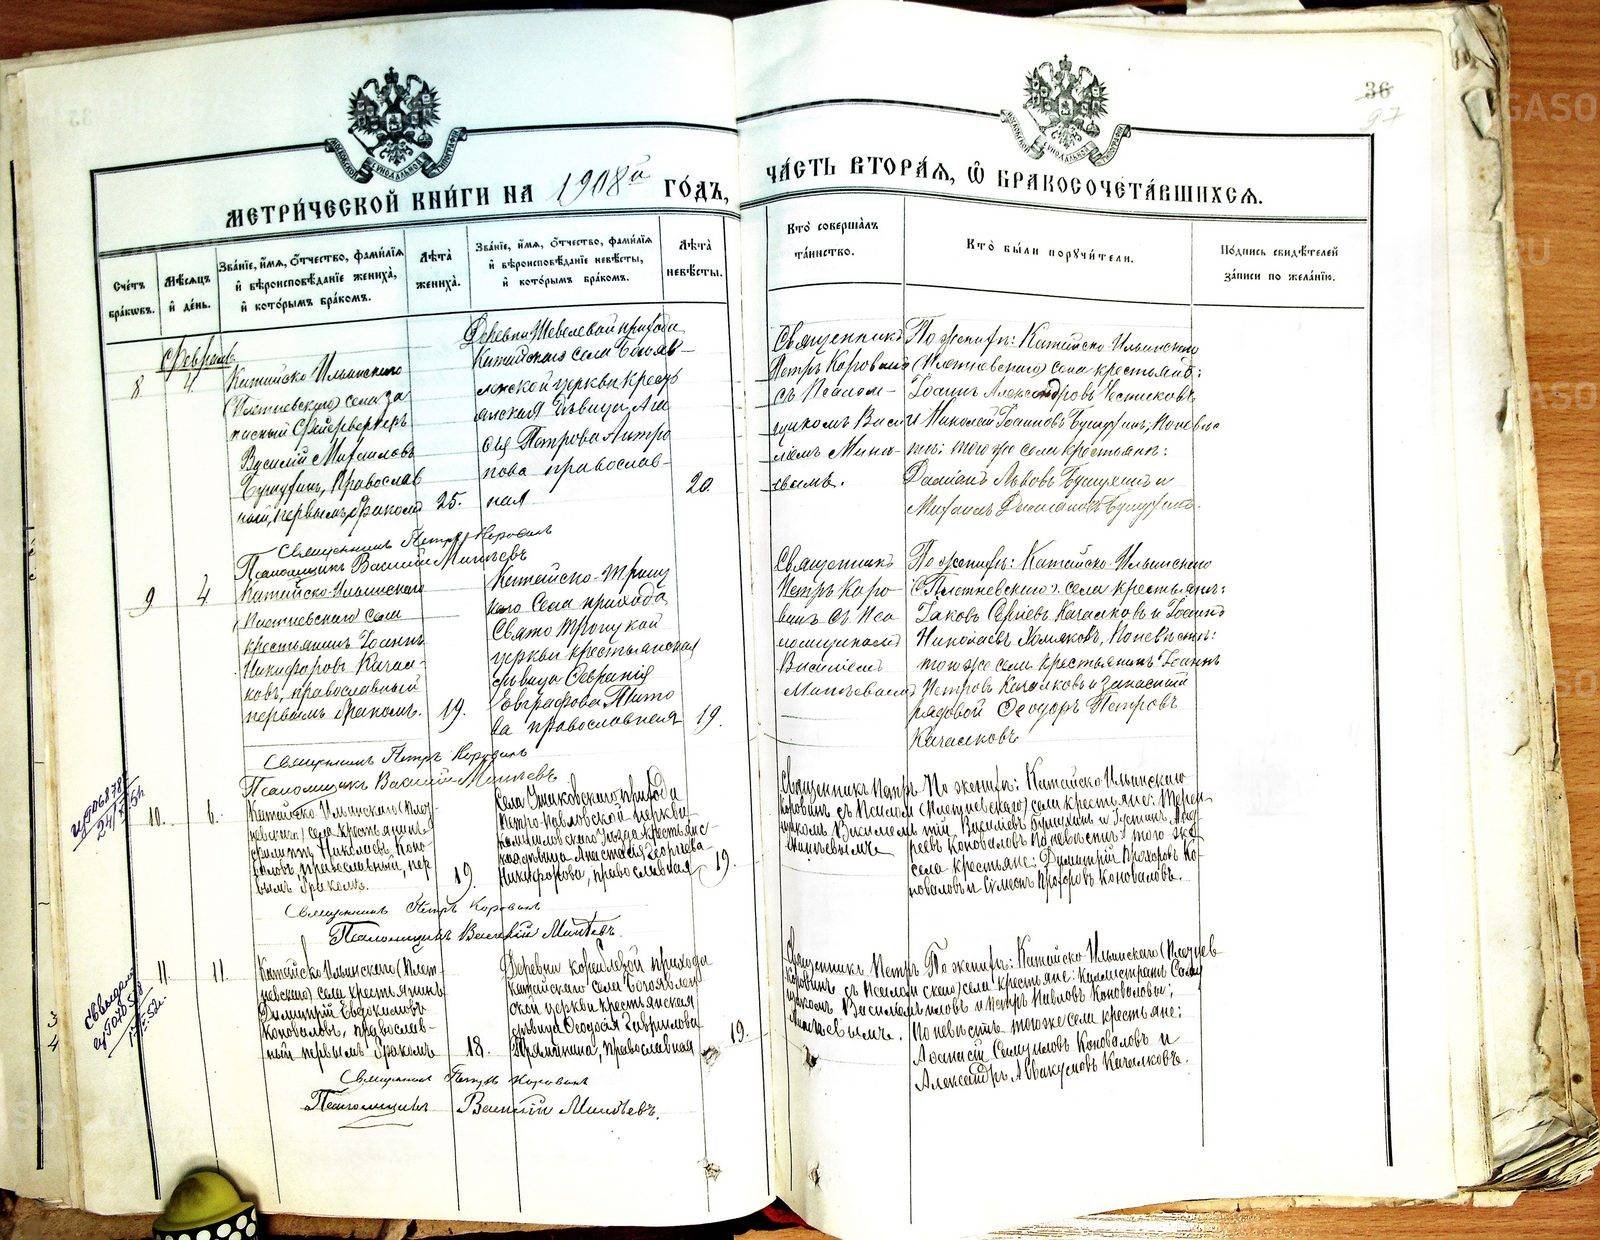 36
97
МЕТРИ́ЧЕСКОЙ КНИ́ГИ НА 1908й ГО́ДЪ,
ЧА́СТЬ ВТОРА́Я, Ѡ҆ БРАКОСОЧЕТА́ВШИХСЯ.
Сче́тъ бра́кѡвъ.
Мѣ́сяцъ и҆ де́нь.
Зва́нїе, и҆́мя, ѻ҆́тчество, фамѝлїя и҆ вѣроисповѣ́данїе жениха̀, и҆ кото́рымъ бра́комъ.
Лѣ́та жениха̀.
Зва́нїе, и҆́мя, ѻ҆́тчество, фамѝлїя и҆ вѣроисповѣ́данїе невѣ́сты, и҆ кото́рымъ бра́комъ.
Лѣ́та невѣ́сты.
Кто̀ соверша́лъ та́инство.
Кто̀ бы́ли порꙋчи́тели.
По́дпись свидѣ́телей за́писи по жела́нїю.
Февраль
8
4
Катайско-Ильинскаго
(Плотневскаго) села за
пасный Фейерверкеръ
Василій Михаиловъ
Бушухинъ, Православ
ный, первымъ бракомъ
25.
Деревни Шевелевой прихода
Катайскаго села Богояв-
ленской церкви крестъ
янская дѣвица
Петрова Антро
пова православ-
ная
20.
Священникъ
Петръ Коровинъ
съ Псалом-
щикомъ Васи
лемъ Мини
евымъ.
По женихѣ: Катайско-Ильинскаго
(Плотневскаго) села крестьяне:
Іоаннъ Александровъ
и Николай Іоанновъ Бушухинъ; По невѣс
тѣ: того же села крестьяне:
Даміанъ Львовъ Бушухинъ и
Михаилъ Даміановъ Бушухинъ.
Священникъ Петръ Коровинъ
Псаломщикъ Василій Минѣевъ
9
4
Катайско-Ильинскаго
(Плотневскаго) села
крестьянинъ Іоаннъ
Никифоровъ Качал-
ковъ, православный
первымъ бракомъ.
19.
Катайско-Троиц
каго Села прихода
Свято Троицкой
церкви крестьянская
дѣвица Февронія
Евграфова Тито
ва православная
19.
Священникъ
Петръ Коро
винъ съ Пса
ломщикомъ
Василіемъ
Минѣевымъ
По женихѣ: Катайско-Ильинскаго
(Плотневскаго) села крестьяне:
Іаковъ Сергіевъ Качалковъ и Іоаннъ
Николаевъ, По невѣстѣ:
того же села крестьянинъ Іоаннъ
Петровъ Качалковъ и Запасный
рядовой Ѳеодоръ Петровъ
Качалковъ.
Священникъ Петръ Коровинъ
Псаломщикъ Василій Минѣевъ.
10.
6.
Катайско-Ильинскаго (Плот
невскаго) села крестьянинъ
Филиппъ Николаевъ Коно
валовъ, православный, пер
вымъ бракомъ.
19.
Села прихода
Петро-Павловской церкви
Камышловскаго Уѣзда крестьянс-
кая дѣвица Анастасія Георгіева
Никифорова, православная
19.
Священникъ Петръ
Коровинъ съ Псалом
щикомъ Василіемъ
Минѣевымъ
По женихѣ: Катайско-Ильинскаго
(Плотневскаго) села крестьяне: Терен
тій Василіевъ Бушухинъ и Іустинъ Анд
реевъ Коноваловъ По невѣстѣ: того же
села крестьяне: Димитрій Прохоровъ Ко-
новаловъ и Сѵмеонъ Прохоровъ Коноваловъ.
Священникъ Петръ Коровинъ
Псаломщикъ Василій Минѣевъ.
11.
11.
Катайско-Ильинскаго (Плот-
невскаго) села крестьянинъ
Димитрій Евдокимовъ
Коноваловъ, православ-
ный первымъ бракомъ
18.
Деревни Корабле­вой прихода
Катайскаго села Богоявлен
ской церкви крестьянская
дѣвица Ѳеодосія Гавриилова
Прямичкина, православная
19.
Священникъ Петръ
Коровинъ съ Псалом
щикомъ Василіемъ
Минѣевымъ.
По женихѣ: Катайско-Ильинскаго (Плотнев
скаго) села крестьяне: Каллистратъ Саму
иловъ и Петръ Павловъ Коноваловы;
По невѣстѣ: того же села крестьяне:
Аѳанасій Самуиловъ Коноваловъ и
Александръ Аввакумовъ Качалковъ.
Священникъ Петръ Коровинъ
Псаломщикъ Василій Минѣевъ.
3
4